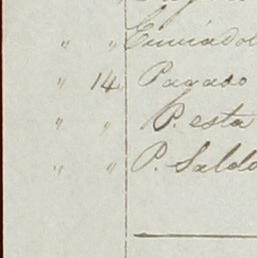 " " Enviado
" 14 Pagado
" " P. esta
" " P. Saldo